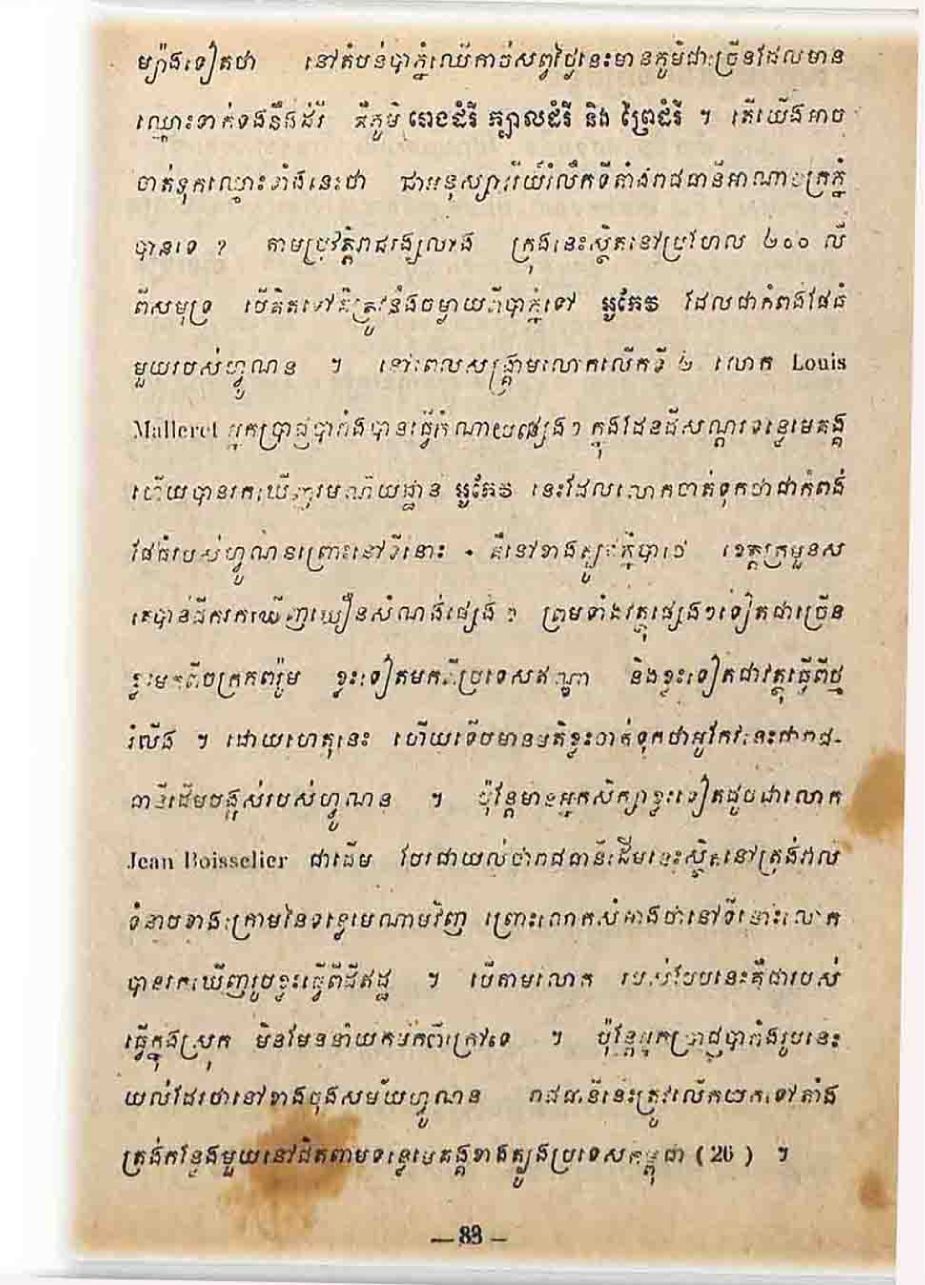 ម្យ៉ាងទៀតថា នៅតំបន់បាភ្នំឈើកាច់សព្វថ្ងៃនេះមានភូមិជាច្រើនដែលមាន
ឈ្មោះទាក់ទងនឹងដំរី គឺភូមិ រោងដំរី ក្បាលដំរី និង ព្រៃដំរី ។ តើយើងអាច
ចាត់ទុកឈ្មោះទាំងនេះថា ជាអនុស្សាវរីយ៍រំលឹកទីតាំងរាជធានីអាណាចក្រភ្នំ
បានទេ ? តាមប្រវត្តិរាជវង្សលាង ក្រុងនេះស្ថិតនៅប្រហែល ២០០ លី
ពីសមុទ្រ បើគិតទៅគឺត្រូវនឹងចម្ងាយពីបាភ្នំទៅ អូរកែវ ដែលជាកំពង់ផែធំ
មួយរបស់ហ្វូណន ។ នៅពេលសង្គ្រាមលោកលើកទី ២ លោក Louis
Malleret អ្នកប្រាជ្ញបារាំងបានធ្វើកំណាយផ្សេងៗ ក្នុងដែនដីសណ្តរទន្លេមេគង្គ
ហើយបានរកឃើញរមណីយដ្ឋាន អូរកែវ នេះដែលលោកចាត់ទុកថាជាកំពង់
ផែធំរបស់ហ្វូណនព្រោះនៅទីនោះ គឺនៅខាងត្បូងភ្នំបាថេ ខេត្តក្រមួនស
គេបានជីករកឃើញឃឿនសំណង់ផ្សេង ៗ ព្រមទាំងវត្ថុផ្សេងៗទៀតជាច្រើន
ខ្លះមកពីចក្រភពរ៉ូម ខ្លះទៀតមកពីប្រទេសឥណ្ឌា និងខ្លះទៀតជាវត្ថុធ្វើពីថ្ម
រំលីង ។ ដោយហេតុនេះ ហើយទើបមានមតិខ្លះចាត់ទុកថាអូរកែវនេះជារាជ-
ធានីដើមបង្អស់របស់ហ្វូណន ។ ប៉ុន្តែមានអ្នកសិក្សាខ្លះទៀតដូចជាលោក
Jean Boisselier ជាដើម បែរជាយល់ថារាជធានីដើមនេះស្ថិតនៅត្រង់វាល
ទំនាបខាងក្រោមនៃទន្លេមេណាមវិញ ព្រោះលោកសំអាងថានៅទីនោះលោក
បានរកឃើញរូបខ្លះធ្វើពីដីឥដ្ឋ ។ បើតាមលោក របស់បែបនេះគឺជារបស់
ធ្វើក្នុងស្រុក មិនមែននាំយកមកពីក្រៅទេ ។ ប៉ុន្តែអ្នកប្រាជ្ញបារាំងរូបនេះ
យល់ដែរថានៅខាងចុងសម័យហ្វូណន រាជធានីនេះត្រូវលើកយកទៅតាំង
ត្រង់កន្លែងមួយនៅជិតតាមទន្លេមេគង្គខាងត្បូងប្រទេសកម្ពុជា ( 26 ) ។
— 83 —